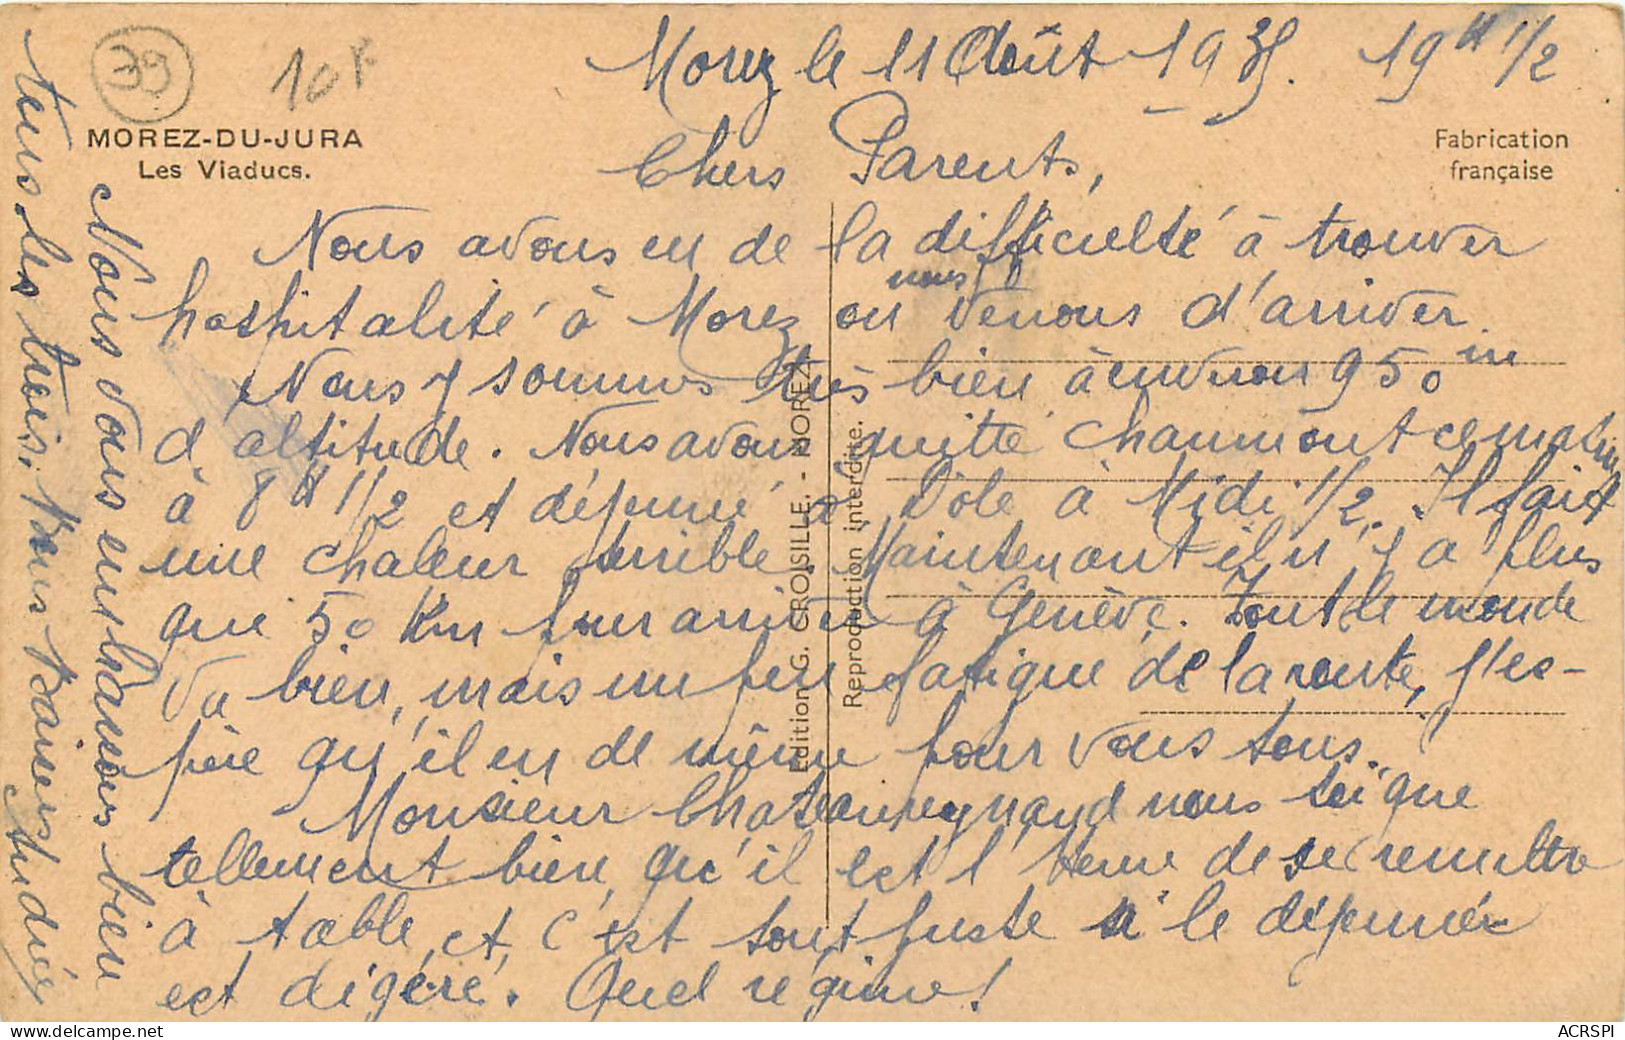 39
10 F
MOREZ-DU-JURA
Les Viaducs.
Fabrication
française
Edition G. CROISILLE. - MOREZ
Reproduction interdite.
Morez le 11 Août 1935. 19H 1/2
Chers Parents,
Nous avons eu de la difficulté à trouver
hospitalité à Morez où nous venons d'arriver.
Nous y sommes très bien à environ 950 m
d altitude. Nous avons quitté Chaumont ce matin
à 8H 1/2 et déjeuné à Dôle à Midi 1/2. Il fait
une chaleur terrible. Maintenant il n'y a plus
que 50 Km pour arriver à Genève. Tout le monde
va bien, mais un peu fatigué de la route, j'es-
père qu'il en de même pour vous tous.
Monsieur Chateaureynaud nous soigne
tellement bien, qu'il est l'heure de se remettre
à table, et c'est tout juste si le déjeuner
est digéré. Quel régime!
Nous vous embrassons bien
tous les trois. Bons Baisers
Andrée
ACRSPI
www.delcampe.net